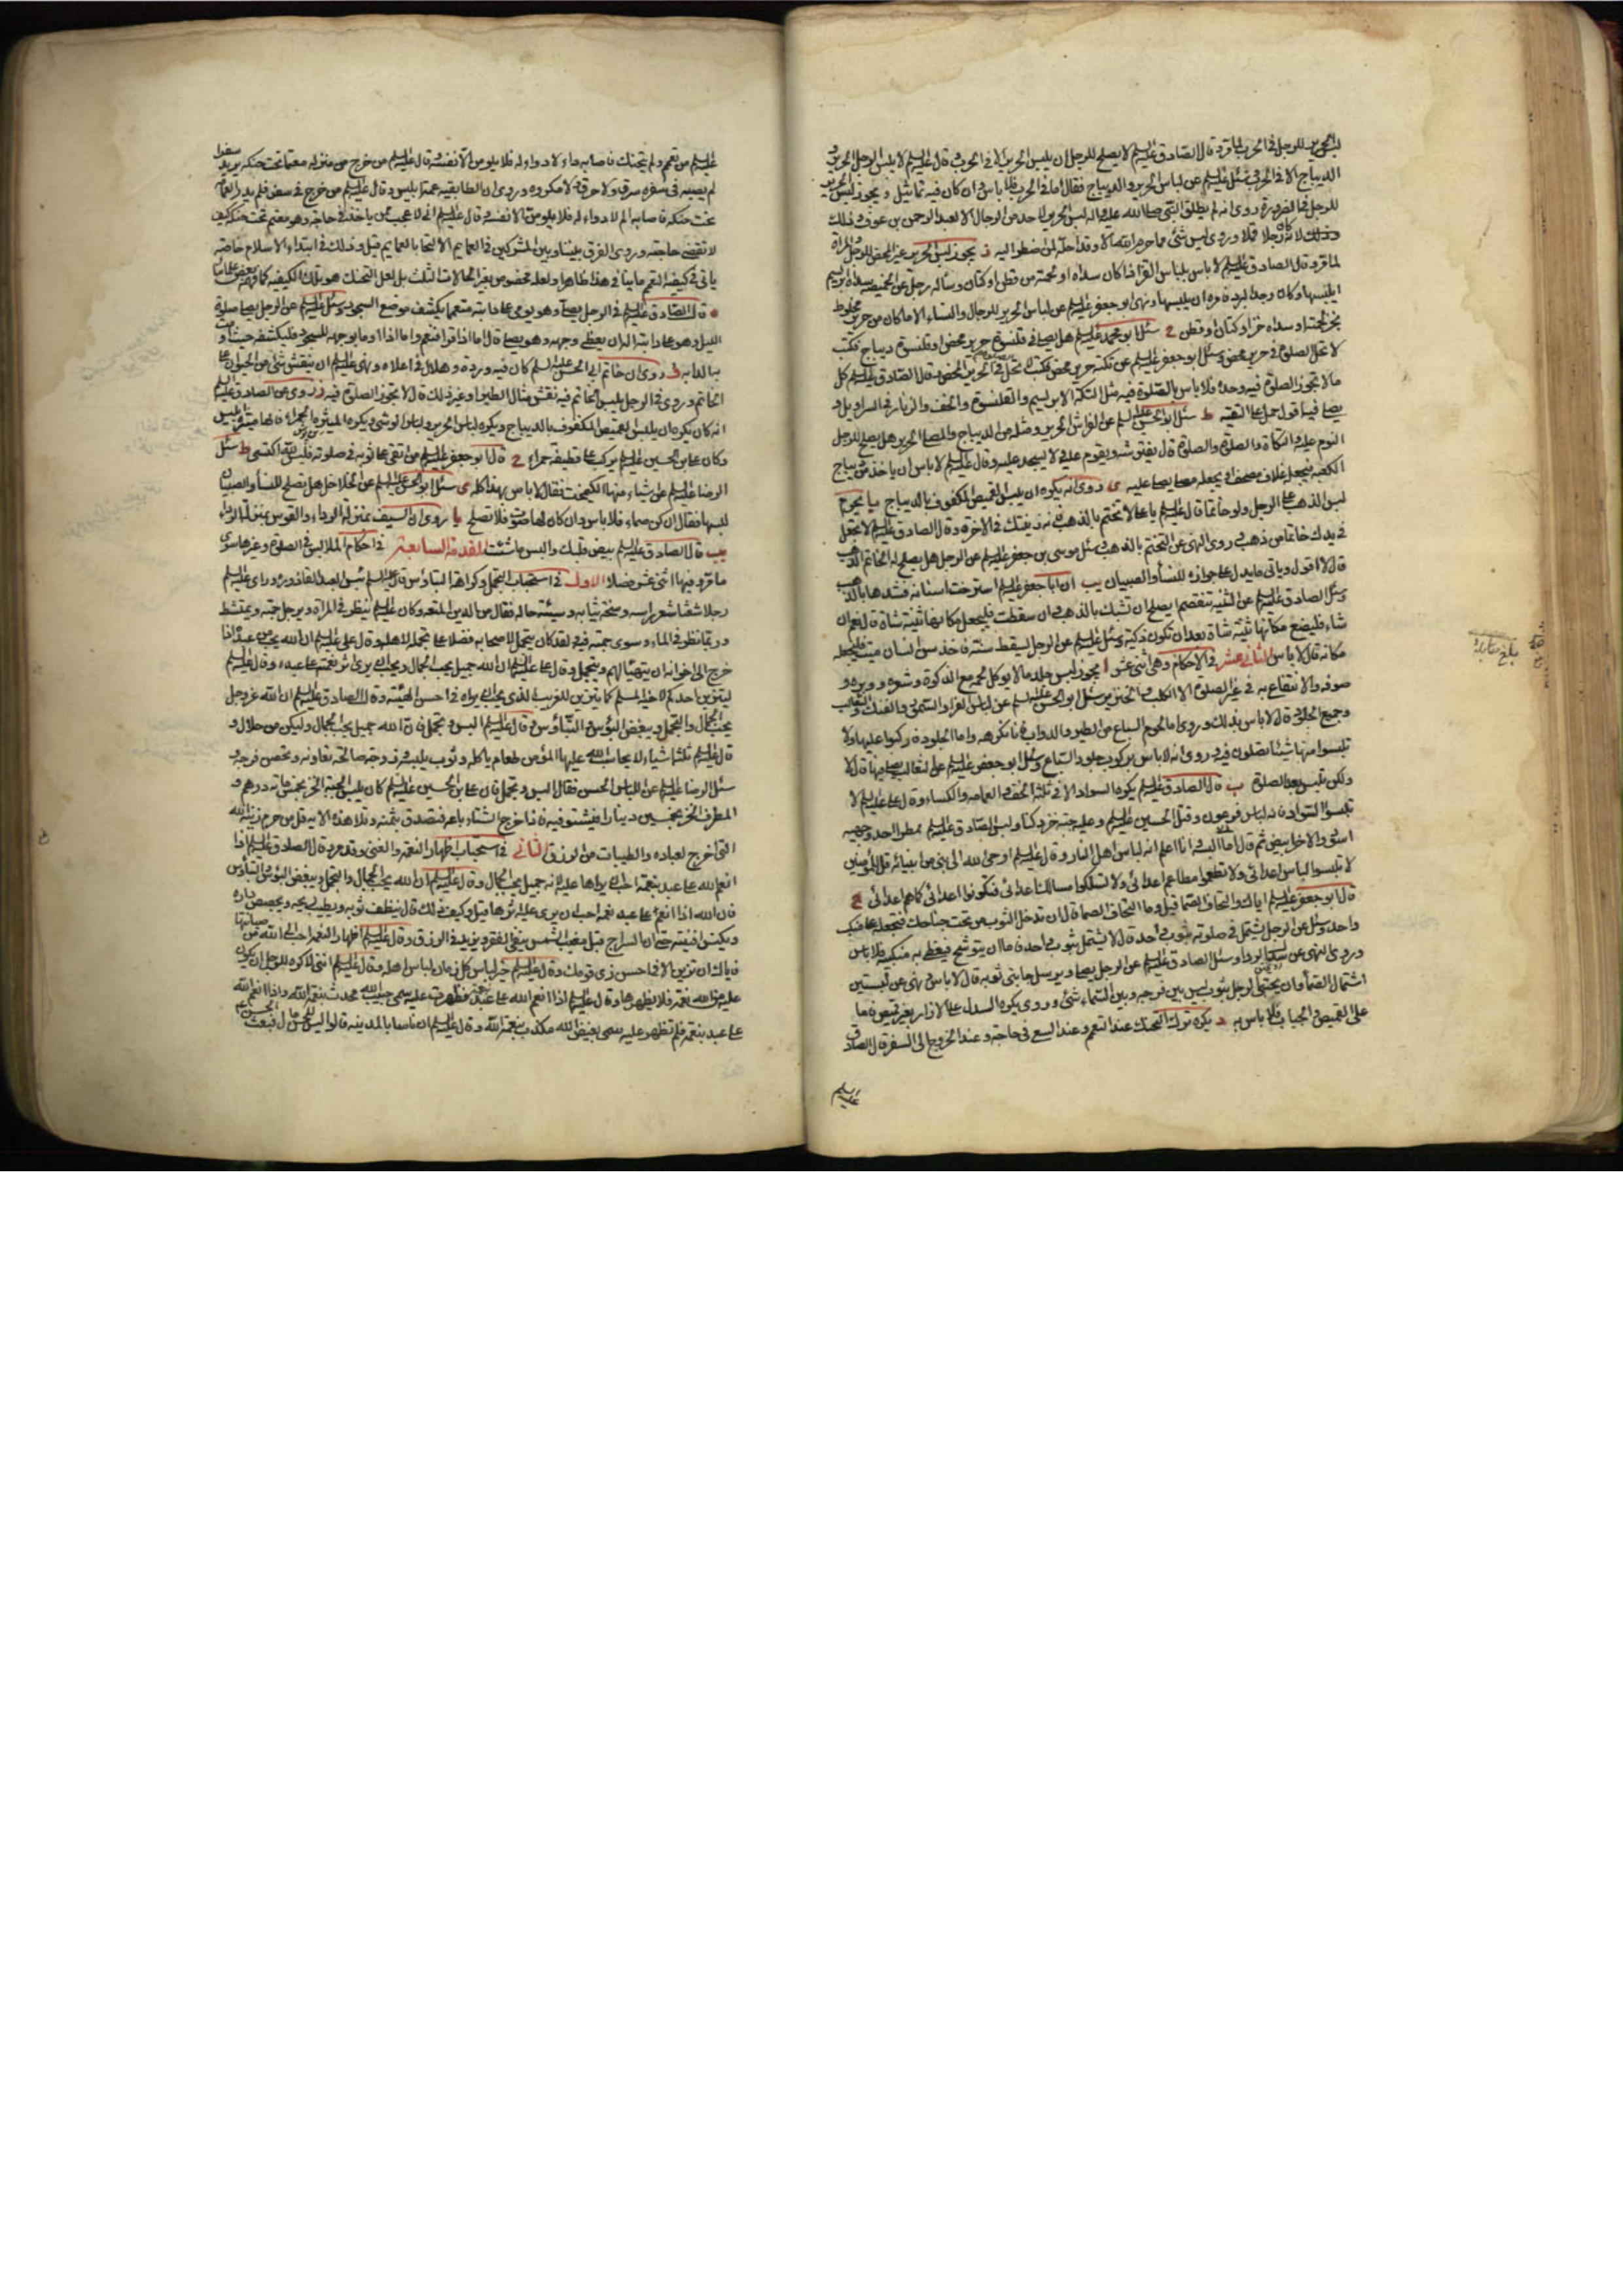 لبس الحرير للرجل في الحرب لما مر وقال الصادق عليه السلم لا يصلح للرجل ان يلبس الحرير الا في الحرب وقال عليه السلم لا يلبس الرجل الحرير و
الديباج الا في الحرب وسئل عليه السلم عن لباس الحرير والديباج فقال اما في الحرب فلا باس وان كان فيه تماثيل ويجوز لبس الحرير
للرجل في الضرورة روى انه لم يطلق النبي صلى الله عليه واله لبس الحرير لاحد من الرجال الا لعبد الرحمن بن عوف وذلك
رجلا قملا وروى ليس شئ مما حرم الله تعالى الا وقد احله لمن اضطر اليه يجوز لبس الحرير غير المحض للرجل والمراة
لما مر وقال الصادق عليه السلم لا باس بلباس القز اذا كان سداه او لحمته من قطن او كتان وساله رجل عن الخميصة سداه ابريسم
ايلبسها وكان وجد البرد فامره ان يلبسها ونهى ابو جعفر عليه السلم عن لباس الحرير للرجال والنساء الا ما كان من حرير مخلوط
بخز لحمته او سداه خز او كتان او قطن ح سئل ابو محمد عليه السلم هل يصلى في قلنسوة حرير محض او قلنسوة ديباج فكتب
لا تحل الصلوة في حرير محض وسئل ابو جعفر عليه السلم عن تكة حرير محض فكتب لا تحل في الحرير المحض وقال الصادق عليه السلم كل
ما لا تجوز الصلوة فيه وحده فلا باس بالصلوة فيه مثل التكة الابريسم والقلنسوة والخف والزنار في السراويل و
يصلى فيه اقول حمل على التقية ط سئل ابو الحسن عليه السلم عن الفراش الحرير ومثله من الديباج والمصلى الحرير هل يصلح للرجل
النوم عليه والتكاة والصلوة قال يفترشه ويقوم عليه ولا يسجد عليه وقال عليه السلم لا باس ان ياخذ من ديباج
الكعبة فيجعله غلاف مصحف او يجعله مصلى يصلى عليه ى روى انه يكره ان يلبس القميص المكفوف بالديباج يا يحرم
لبس الذهب على الرجل ولو خاتما قال عليه السلم يا على لا تختم بالذهب فانه زينتك في الاخرة وقال الصادق عليه السلم لا تجعل
في يدك خاتما من ذهب وروى النهي عن التختم بالذهب وسئل موسى بن جعفر عليه السلم عن الرجل هل يصلح له الخاتم الذهب
قال لا اقول وياتي ما يدل على جوازه للنساء والصبيان يب ان ابا جعفر عليه السلم استرخت اسنانه فشدها بالذهب
وسئل الصادق عليه السلم عن الثنية تنفصم ايصلح ان تشبك بالذهب وان سقطت فيجعل مكانها ثنية شاة قال نعم ان
شاء فليضع مكانها ثنية شاة بعد ان تكون ذكية وسئل عليه السلم عن الرجل يسقط سنه فاخذ سن انسان ميت فيجعله
مكانه قال لا باس الثاني عشر في الاحكام وهي اثنى عشر ا يجوز لبس جلد ما لا يوكل لحمه مع الذكوة وشعره ووبره و
صوفه والانتفاع به في غير الصلوة الا الكلب والخنزير سئل ابو الحسن عليه السلم عن لباس الفراء والسمور والفنك والثعالب
وجميع الجلود قال لا باس بذلك وروى اما لحوم السباع من الطير والدواب فانا نكرهه واما الجلود فاركبوا عليها ولا
تلبسوا منها شيئا تصلون فيه وروى انه لا باس بركوب جلود السباع وسئل ابو جعفر عليه السلم عن الثعالب يصلى فيها قال لا
ولكن تلبس بعد الصلوة ب قال الصادق عليه السلم يكره السواد الا في ثلثة الخف والعمامة والكساء وقال على عليه السلم لا
تلبسوا السواد فانه لباس فرعون وقتل الحسين عليه السلم وعليه جبة خز دكناء ولبس الصادق عليه السلم ممطر احد وجهيه
اسود والاخر ابيض ثم قال اما انى البسه وانا اعلم انه لباس اهل النار وقال عليه السلم اوحى الله الى نبي من انبيائه قل للمؤمنين
لا تلبسوا لباس اعدائى ولا تطعموا مطاعم اعدائى ولا تسلكوا مسالك اعدائى فتكونوا اعدائى كما هم اعدائى ج
قال ابو جعفر عليه السلم اياك والتحاف الصماء قيل وما التحاف الصماء قال ان تدخل الثوب من تحت جناحك فتجعله على منكب
واحد وسئل عن الرجل يشتمل في صلوته بثوب واحد قال لا يشتمل بثوب واحد فاما ان يتوشح فيغطى به منكبيه فلا باس
وروى النهي عن سدل الرداء وسئل الصادق عليه السلم عن الرجل يصلى ويرسل جانبى ثوبه قال لا باس ونهى عن لبستين
اشتمال الصماء وان يحتبى الرجل بثوب ليس بين فرجه وبين السماء شئ وروى يكره السدل على الازار بغير قميص فاما
على القميص والجباب فلا باس به د يكره ترك التحنك عند التعمم وعند السعي في حاجة وعند الخروج الى السفر قال الصادق
عليه السلم
بلغ مقابلة
عليه السلم من تعمم ولم يتحنك فاصابه داء لا دواء له فلا يلومن الا نفسه وقال عليه السلم من خرج من منزله معتما تحت حنكه يريد سفرا
لم يصبه في سفره سرق ولا حرق ولا مكروه وروى ان الطابقية عمة ابليس وقال عليه السلم من خرج في سفر فلم يدر العمامة
تحت حنكه فاصابه الم لا دواء له فلا يلومن الا نفسه وقال عليه السلم انى لاعجب ممن ياخذ في حاجة وهو معتم تحت حنكه كيف
لا تقضى حاجته وروى الفرق بيننا وبين المشركين في العمايم الالتحاء بالعمايم قيل وذلك في ابتداء الاسلام خاصة
ه قال الصادق عليه السلم في الرجل يصلى وهو يومى على دابته متعمما يكشف موضع السجود وسئل عليه السلم عن الرجل يصلى صلوة
الليل وهو على دابته اله ان يغطى وجهه وهو يصلى قال اما اذا قرا فنعم واما اذا اوما بوجهه للسجود فليكشفه حيث اومات
به الدابة و روى ان خاتم ابى الحسن عليه السلم كان فيه وردة وهلال في اعلاه ونهى عليه السلم ان ينقش شئ من الحيوان على
الخاتم وروى في الرجل يلبس الخاتم فيه نقش مثال الطير او غير ذلك قال لا تجوز الصلوة فيه ز روى عن الصادق عليه السلم
انه كان يكره ان يلبس القميص المكفوف بالديباج ويكره لباس الحرير ولباس الوشى ويكره الميثرة الحمراء فانها ميثرة ابليس
وكان على بن الحسين عليه السلم يركب على قطيفة حمراء ح قال ابو جعفر عليه السلم من اتقى على ثوبه في صلوته فليس لله اكتسى ط سئل
الرضا عليه السلم عن اشياء منها الكيمخت فقال لا باس بهذا كله ى سئل ابو الحسن عليه السلم عن الخلاخل هل يصلح للنساء والصبيان
لبسها فقال ان كن صماء فلا باس وان كان لها صوت فلا تصلح يا روى ان السيف بمنزلة الرداء والقوس بمنزلة الرداء
يب قال الصادق عليه السلم بيض قلبك والبس ما شئت المقدمة السابعة في احكام الملابس في الصلوة وغيرها سوى
ما مر وفيها اثنى عشر فصلا الاول في استحباب التجمل وكراهة التباؤس قال عليه السلم بئس العبد القاذورة وراى عليه السلم
رجلا شعثا شعر راسه وسخة ثيابه وسيئة حاله فقال من الدين المتعة وكان عليه السلم ينظر في المراة ويرجل جمته ويمتشط
وربما نظر في الماء وسوى جمته فيه ولقد كان يتجمل لاصحابه فضلا على تجمله لاهله وقال عليه السلم ان الله يحب من عبده اذا
خرج الى اخوانه ان يتهيا لهم ويتجمل وقال على عليه السلم ان الله جميل يحب الجمال ويحب ان يرى اثر نعمته على عبده وقال عليه السلم
ليتزين احدكم لاخيه المسلم كما يتزين للغريب الذى يحب ان يراه في احسن الهيئة وقال الصادق عليه السلم ان الله عز وجل
يحب الجمال والتجمل ويبغض البؤس والتباؤس وقال عليه السلم البس وتجمل فان الله جميل يحب الجمال وليكن من حلال و
قال عليه السلم ثلثة اشياء لا يحاسب الله عليها المؤمن طعام ياكله وثوب يلبسه وزوجة صالحة تعاونه وتحصن فرجه و
سئل الرضا عليه السلم عن اللباس الحسن فقال البس وتجمل فان على بن الحسين عليه السلم كان يلبس الجبة الخز بخمس مائة درهم و
المطرف الخز بخمسين دينارا فيشتو فيه فاذا خرج الشتاء باعه فتصدق بثمنه وتلا هذه الاية قل من حرم زينة الله
التي اخرج لعباده والطيبات من الرزق الثاني في استحباب اظهار النعمة والغنى وقد مر وقال الصادق عليه السلم اذا
انعم الله على عبد بنعمة احب ان يراها عليه لانه جميل يحب الجمال وقال عليه السلم ان الله يحب الجمال والتجمل ويبغض البؤس والتباؤس
فان الله اذا انعم على عبد نعمة احب ان يرى عليه اثرها قيل وكيف ذلك قال ينظف ثوبه ويطيب ريحه ويجصص داره
ويكنس افنيته حتى ان السراج قبل مغيب الشمس ينفى الفقر ويزيد في الرزق وقال عليه السلم اظهار النعمة احب الى الله من صيانتها
فاياك ان تزين الا في احسن زى قومك وقال عليه السلم خير لباس كل زمان لباس اهله وقال عليه السلم انى لاكره للرجل ان يكون
عليه من الله نعمة فلا يظهرها وقال عليه السلم اذا انعم الله على عبده بنعمة فظهرت عليه سمى حبيب الله محدث بنعمة الله واذا انعم الله
على عبد بنعمة فلم تظهر عليه سمى بغيض الله مكذب بنعمة الله وقال عليه السلم ان ناسا بالمدينة قالوا ليس للحسن مال فبعث الحسن